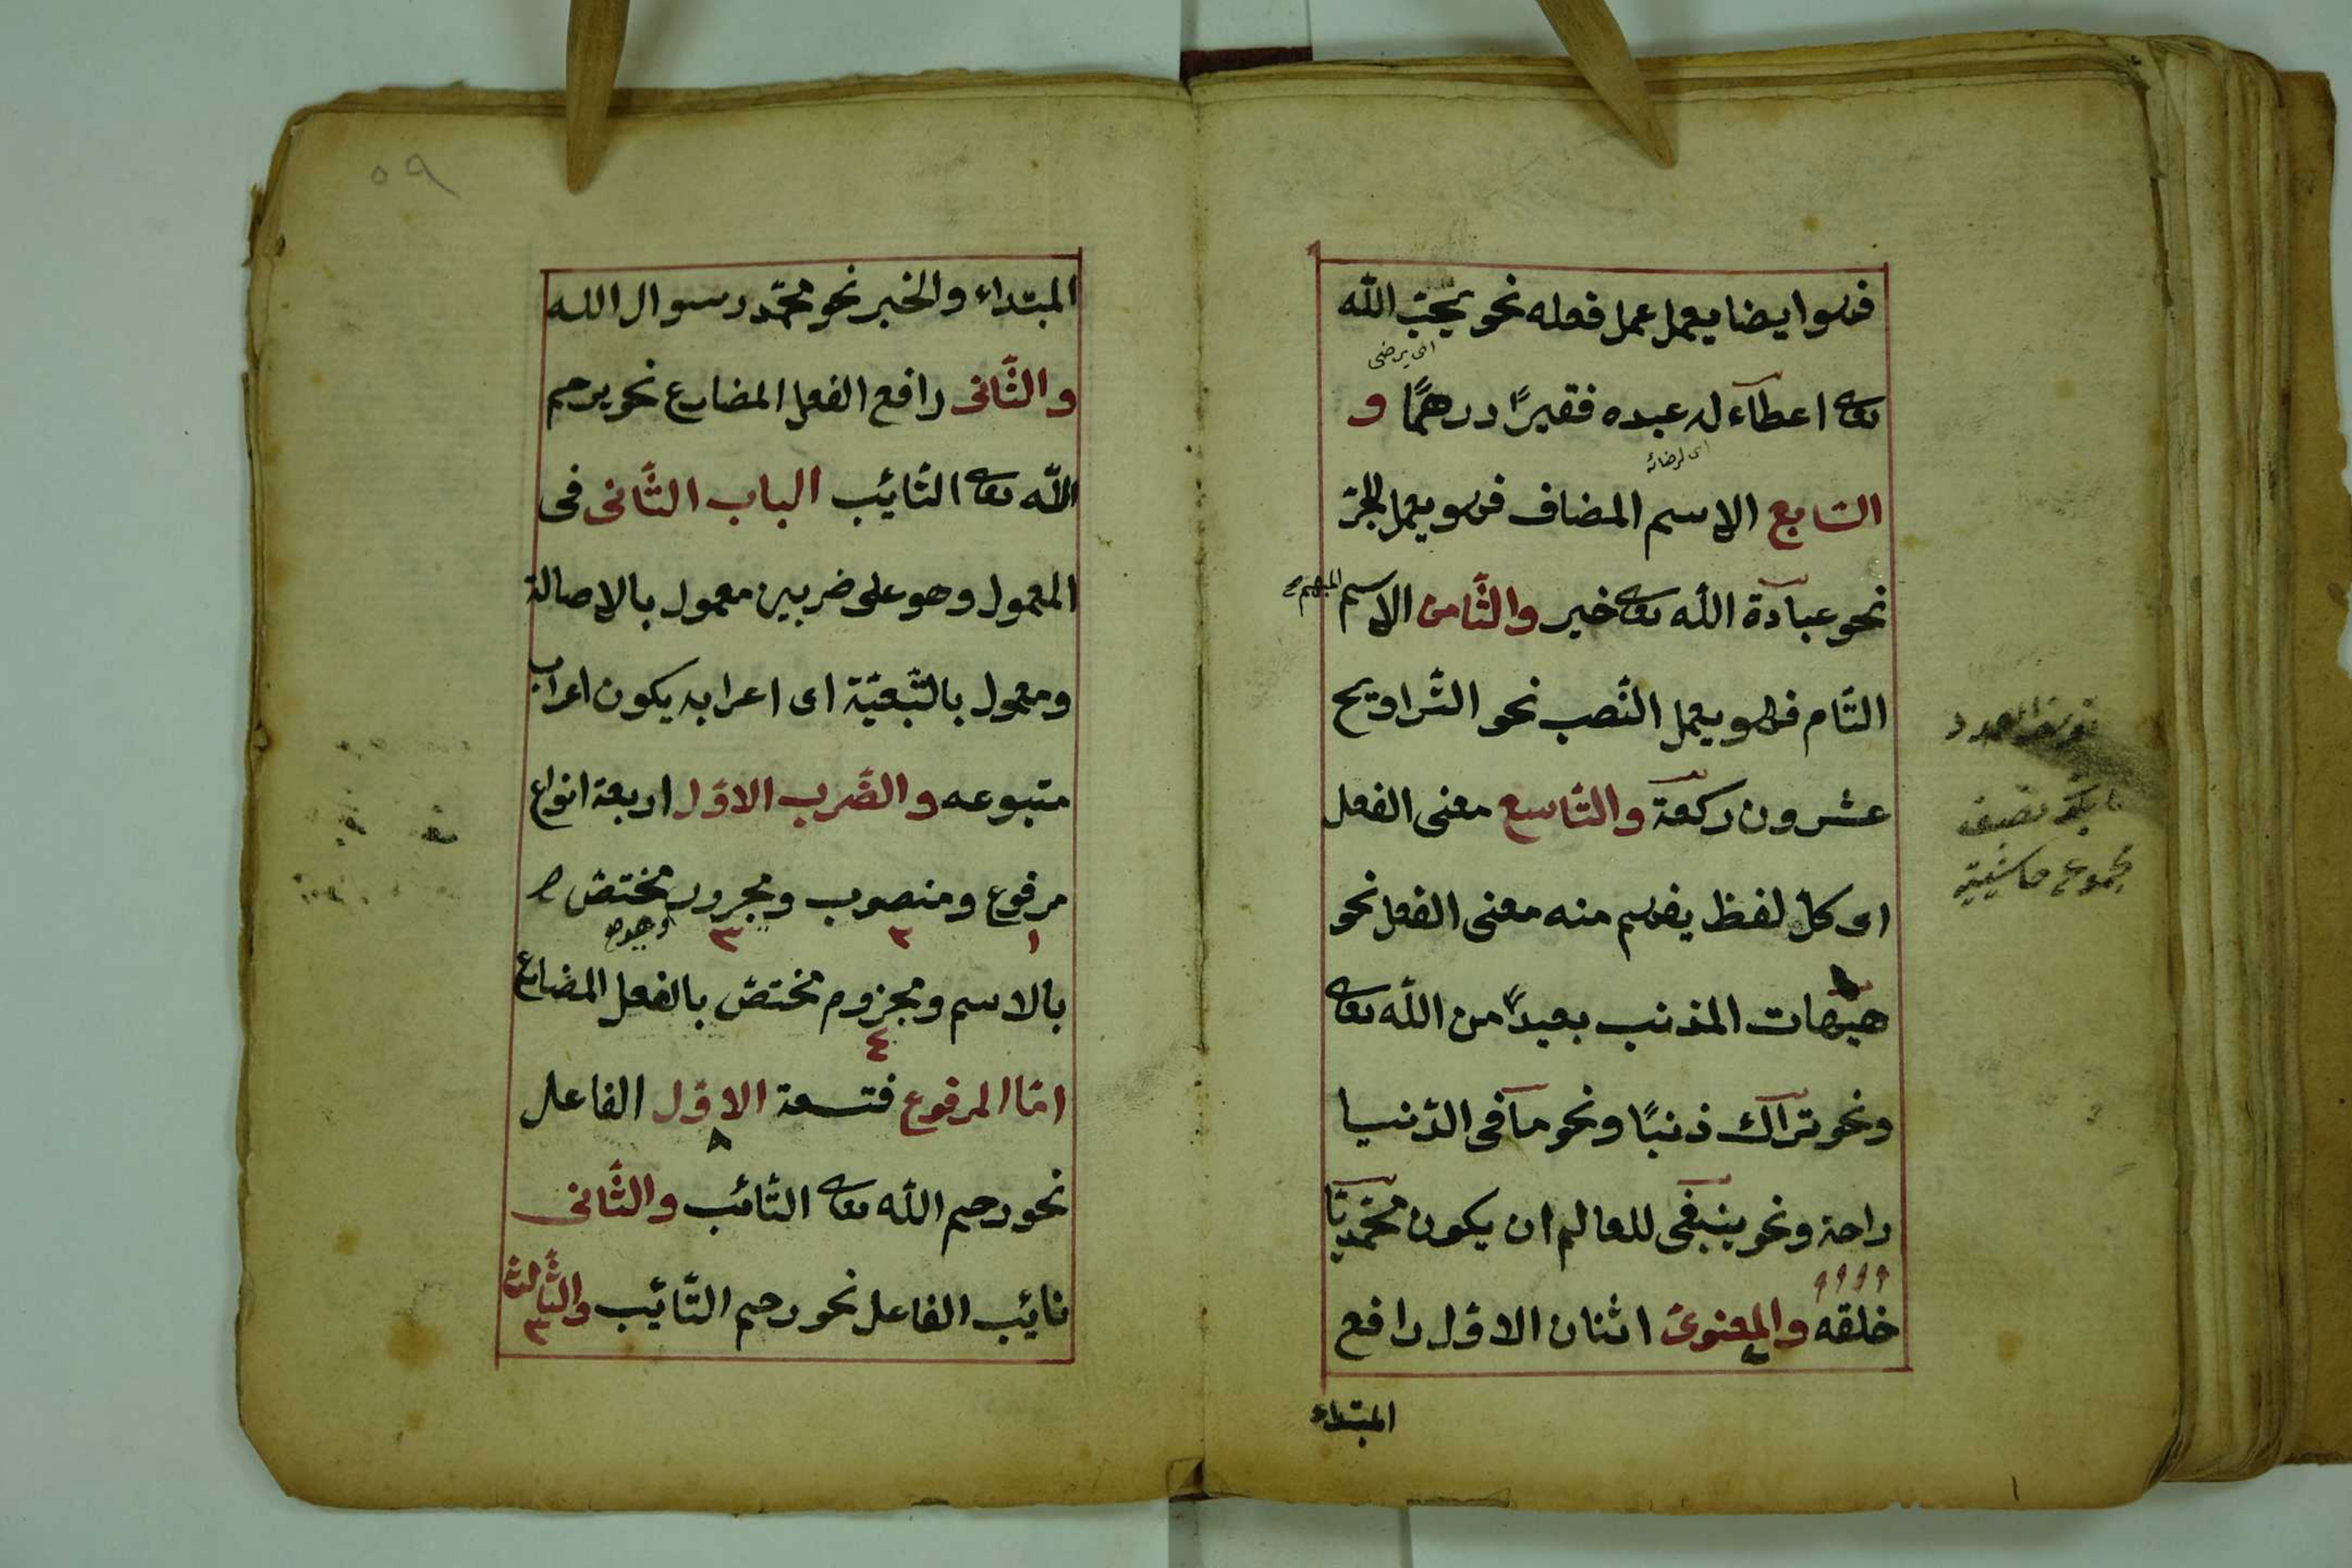 فهو ايضا يعمل عمل فعله نحو يحبّ الله
اى يرضى
تعالى اعطاء له عبده فقيرًا درهمًا و
اى لرضائه
السّابع الاسم المضاف فهو يعمل الجرّ
نحو عبادة الله تعالى خير والثّامن الاسم المبهم
التّام فهو يعمل النّصب نحو التّراويح
عشرون ركعة والتّاسع معنى الفعل
اى كلّ لفظ يفهم منه معنى الفعل نحو
هيهات المذنب بعيدًا من الله تعالى
ونحو تراك ذنبًا ونحو ما فى الدّنيا
راحة ونحو ينبغى للعالم ان يكون محمّديّا
خلقه والمعنوىّ اثنان الاوّل رافع
المبتداء
مجموع حاشية
٥٩
المبتداء والخبر نحو محمّد رسوال الله
والثّانى رافع الفعل المضارع نحو يرحم
الله تعالى التّائب الباب الثّانى فى
المعمول وهو على ضربين معمول بالاصالة
ومعمول بالتّبعيّة اى اعرابه يكون اعراب
متبوعه والضّرب الاوّل اربعة انواع
مرفوع ومنصوب ومجرور مختصّ
١ ٢ ٣
بالاسم ومجزوم مختصّ بالفعل المضارع
٤
امّا المرفوع فتسعة الاوّل الفاعل
نحو رحم الله تعالى التّائب والثّانى
نائب الفاعل نحو رحم التّائب والثّالث
٣